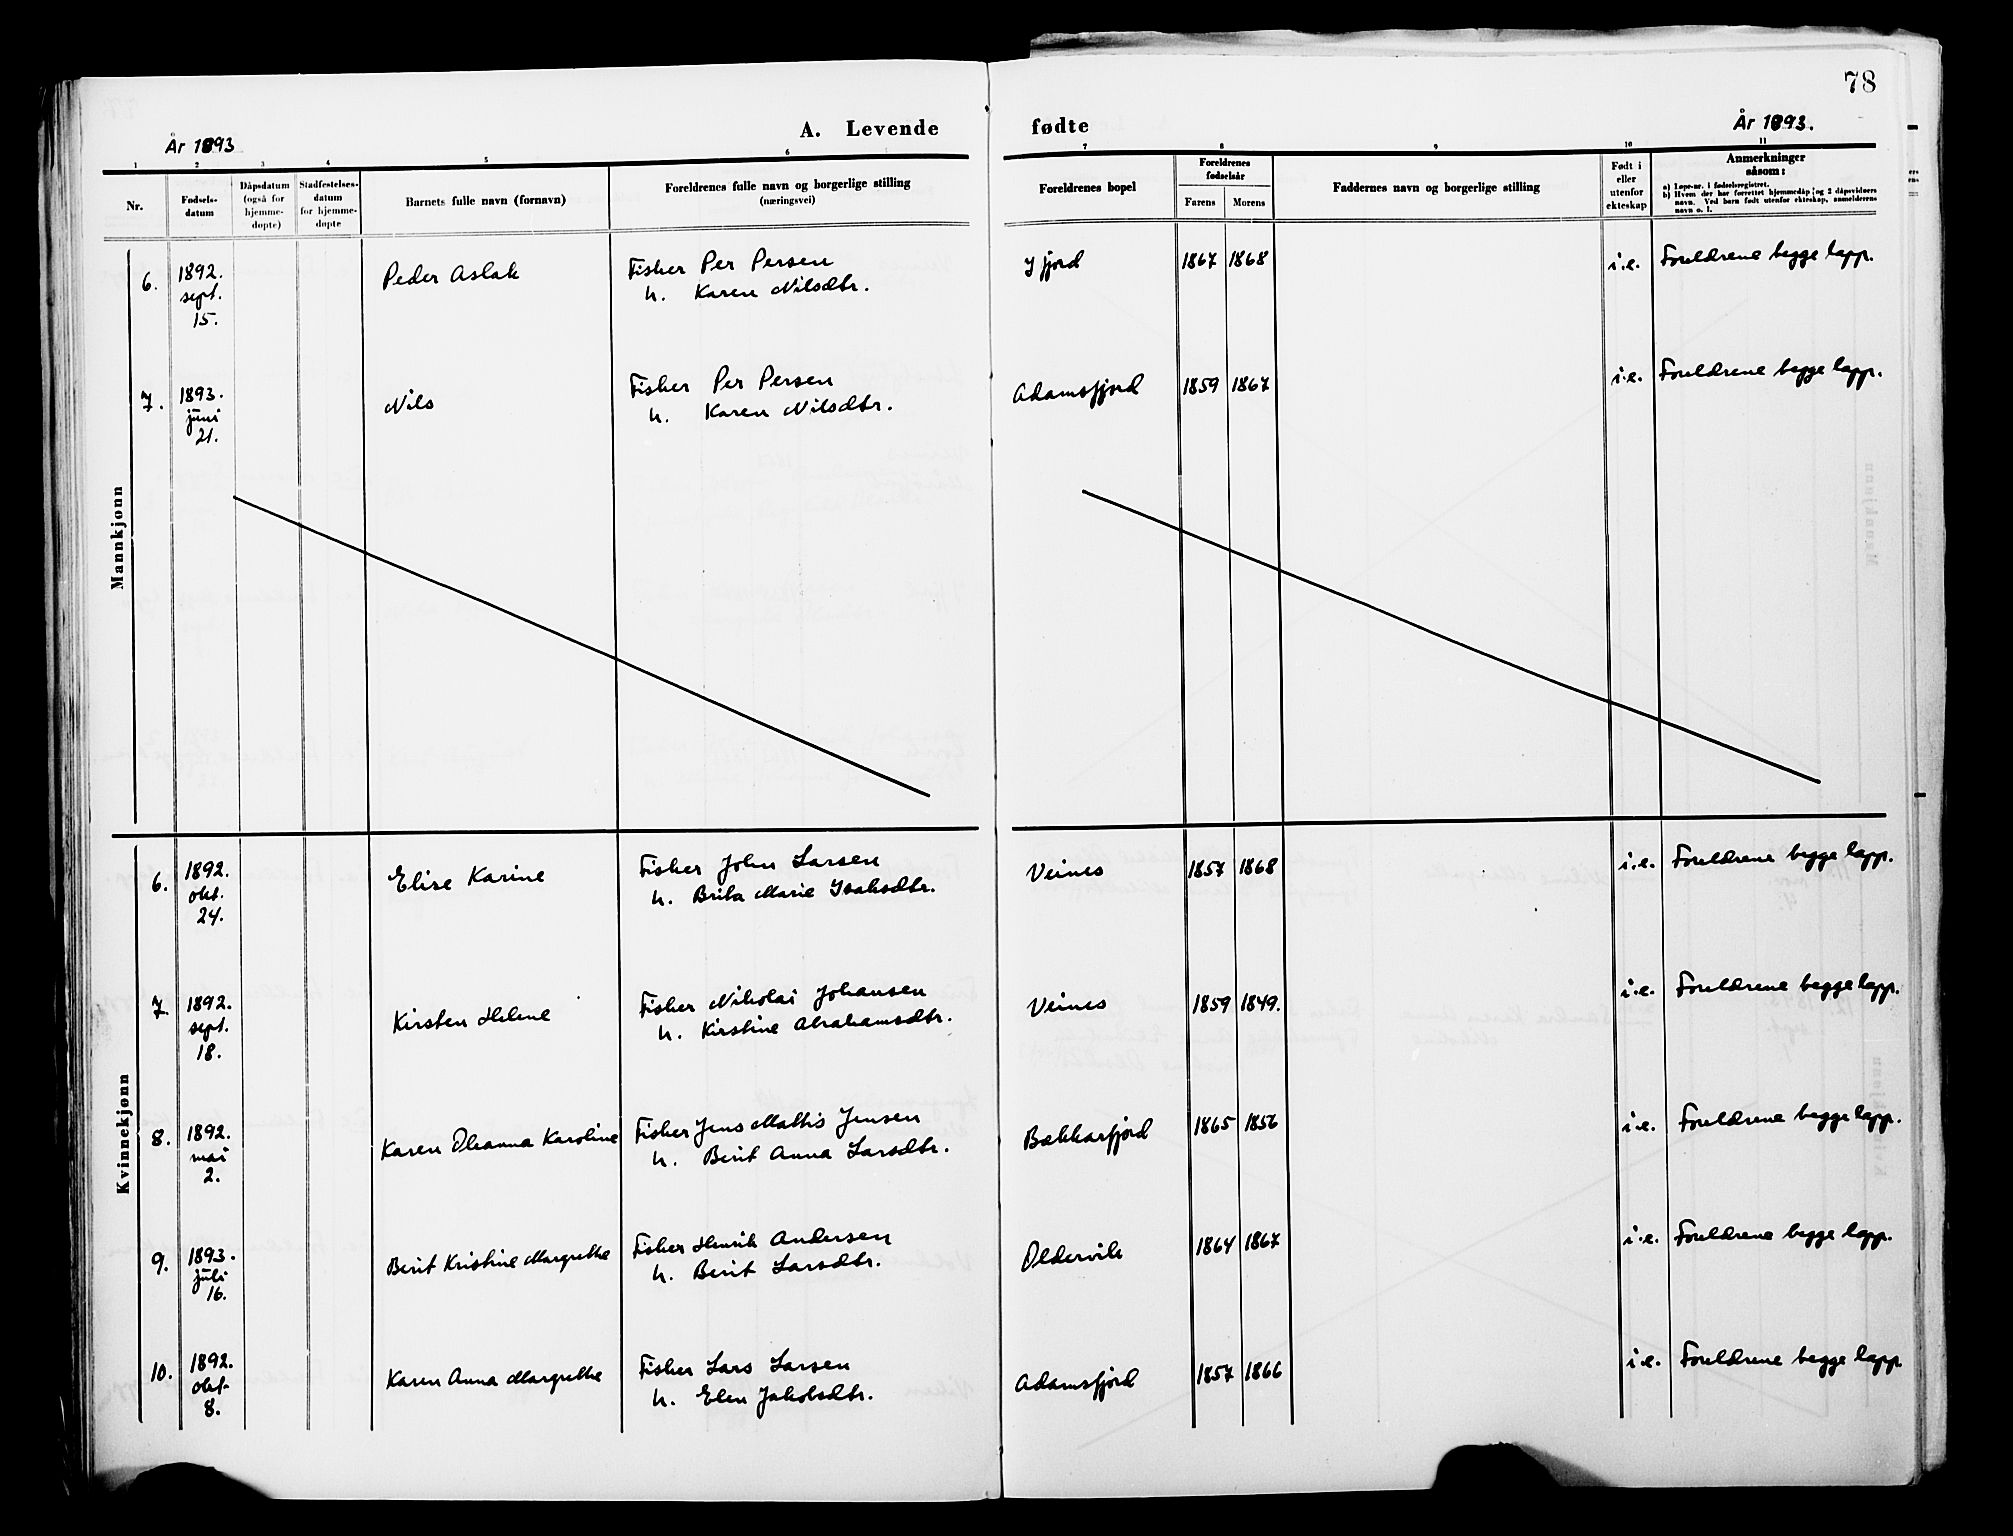 78
År 1893
A. Levende
fødte
År 1893.
1 2 3 4 5 6 7 8 9 10 11
Nr.
Fødsels-
datum
Dåpsdatum
(også for
hjemme-
døpte)
Stadfestelses-
datum
for hjemme-
døpte
Barnets fulle navn (fornavn)
Foreldrenes fulle navn og borgerlige stilling
(næringsvei)
Foreldrenes bopel
Foreldrenes
fødselsår
Farens Morens
Faddernes navn og borgerlige stilling
Født i
eller
utenfor
ekteskap
Anmerkninger
såsom:
a) Løpe-nr. i fødselsregistret.
b) Hvem der har forrettet hjemmedåp og 2 dåpsvidners
navn. Ved barn født utenfor ekteskap, anmelderens
navn o. l.
Mannkjønn
6. 1892. sept. 15. Peder Aslak Fisker Per Persen
h. Karen Nilsdtr. Ifjord 1867 1868 i.e. Foreldrene begge lapp.
7. 1893. juni 21. Nils Fisker Per Persen
h. Karen Nilsdtr. Adamsfjord 1859 1867 i.e. Foreldrene begge lapp.
Kvinnekjønn
6. 1892. okt. 24. Elise Karine Fisker John Larsen
h. Brita Marie Isaksdtr. Veines 1857 1868 i.e. Foreldrene begge lapp.
7. 1892. sept. 18. Kirsten Helene Fisker Nikolai Johansen
h. Kirstine Abrahamsdtr. Veines 1859 1849. i.e. Foreldrene begge lapp.
8. 1892. mai 2. Karen Oleanna Karoline Fisker Jens Mathis Jensen
h. Berit Anna Larsdtr. Bekkarfjord 1865 1856 i.e. Foreldrene begge lapp.
9. 1893. juli 16. Berit Kristine Margrethe Fisker Henrik Andersen
h. Berit Larsdtr. Oldervik 1864 1867 i.e. Foreldrene begge lapp.
10. 1892. okt. 8. Karen Anna Margrethe Fisker Lars Larsen
h. Elen Jakobsdtr. Adamsfjord 1857 1866 i.e. Foreldrene begge lapp.